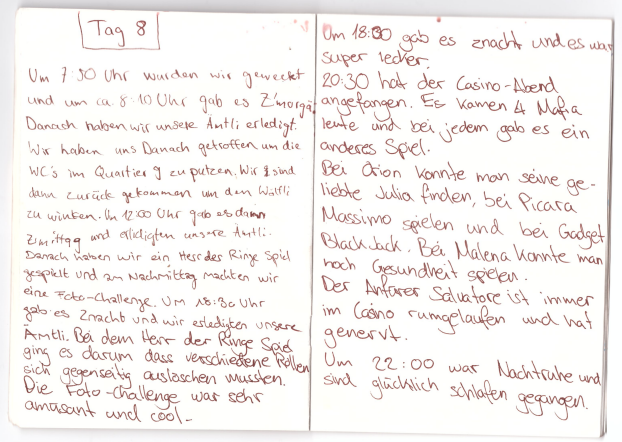 Tag 8
Um 7:50 Uhr wurden wir geweckt
und um ca 8:10 Uhr gab es Z'morgä.
Danach haben wir unsere Ämtli erledigt.
Wir haben uns Danach getroffen um die
WC's im Quartier zu putzen. Wir sind
dann zurück gekommen um den Wölfli
zu winken. Um 12:00 Uhr gab es dann
Zmittag und erledigten unsere Ämtli.
Danach haben wir ein Herr des Ringe Spiel
gespielt und am Nachmittag machten wir
eine Foto-Challenge. Um 18:30 Uhr
gab es Znacht und wir erledigten unsere
Ämtli. Bei dem Herr der Ringe Spiel
ging es darum dass verschiedene Rollen
sich gegenseitig auslöschen mussten.
Die Foto-Challenge war sehr
amüsant und cool.
Um 18:00 gab es znacht und es war
super lecker.
20:30 hat der Casino-Abend
angefangen. Es kamen 4 Mafia
leute und bei jedem gab es ein
anderes Spiel.
Bei Orion konnte man seine ge-
liebte Julia finden, bei Picara
Massimo spielen und bei Gadget
Black Jack. Bei Malena konnte man
noch Gesundheit spielen.
Der Anfürer Salvatore ist immer
im Casino rumgelaufen und hat
genervt.
Um 22:00 war Nachtruhe und
sind glücklich schlafen gegangen.